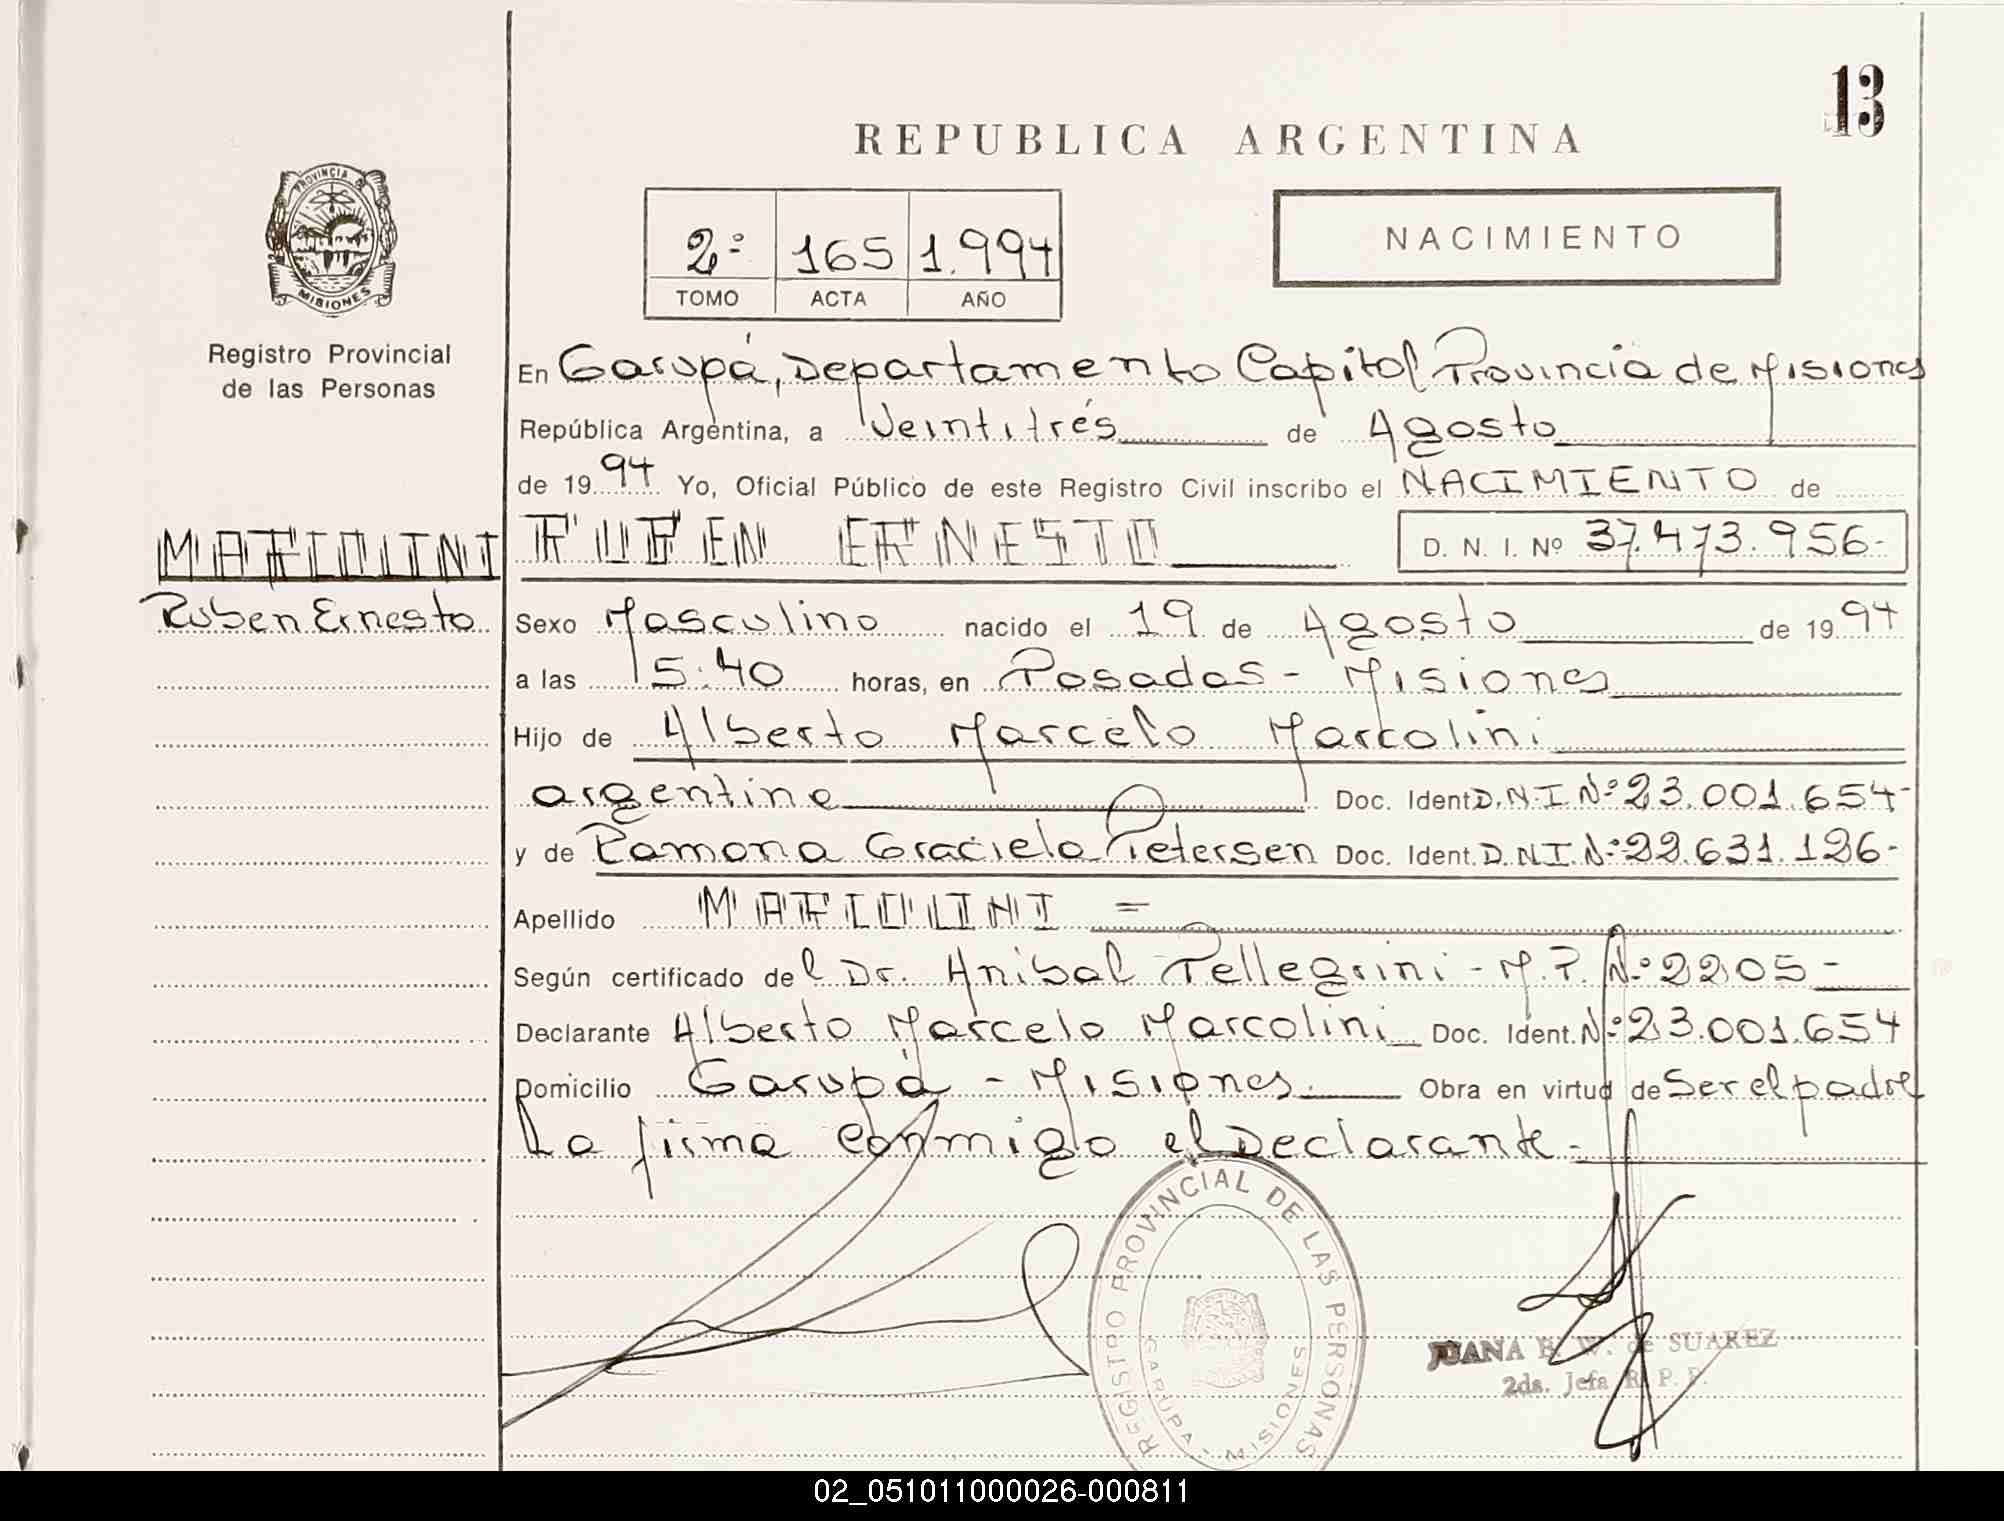 13
REPUBLICA ARGENTINA
PROVINCIA DE
MISIONES
2º 165 1.994
TOMO ACTA AÑO
NACIMIENTO
Registro Provincial
de las Personas
En Garupá, Departamento Capital Provincia de Misiones
República Argentina, a Veintitrés de Agosto
de 1994 Yo, Oficial Público de este Registro Civil inscribo el NACIMIENTO de
MARCOLINI RUBEN ERNESTO D. N. I. Nº 37.473.956-
Ruben Ernesto
Sexo Masculino nacido el 19 de Agosto de 1994
a las 15:40 horas, en Posadas - Misiones
Hijo de Alberto Marcelo Marcolini
argentino Doc. Ident. D.N.I Nº 23.001.654-
y de Ramona Graciela Petersen Doc. Ident. D.N.I. Nº 22.631.126-
Apellido MARCOLINI =
Según certificado del Dr. Anibal Pellegrini - M.P. Nº 2205-
Declarante Alberto Marcelo Marcolini Doc. Ident. Nº 23.001.654
Domicilio Garupá - Misiones. Obra en virtud de Ser el padre
La firma conmigo el Declarante-
REGISTRO PROVINCIAL DE LAS PERSONAS
GARUPA - MISIONES
JUANA B. W. de SUAREZ
2da. Jefa R. P. P.
02_051011000026-000811